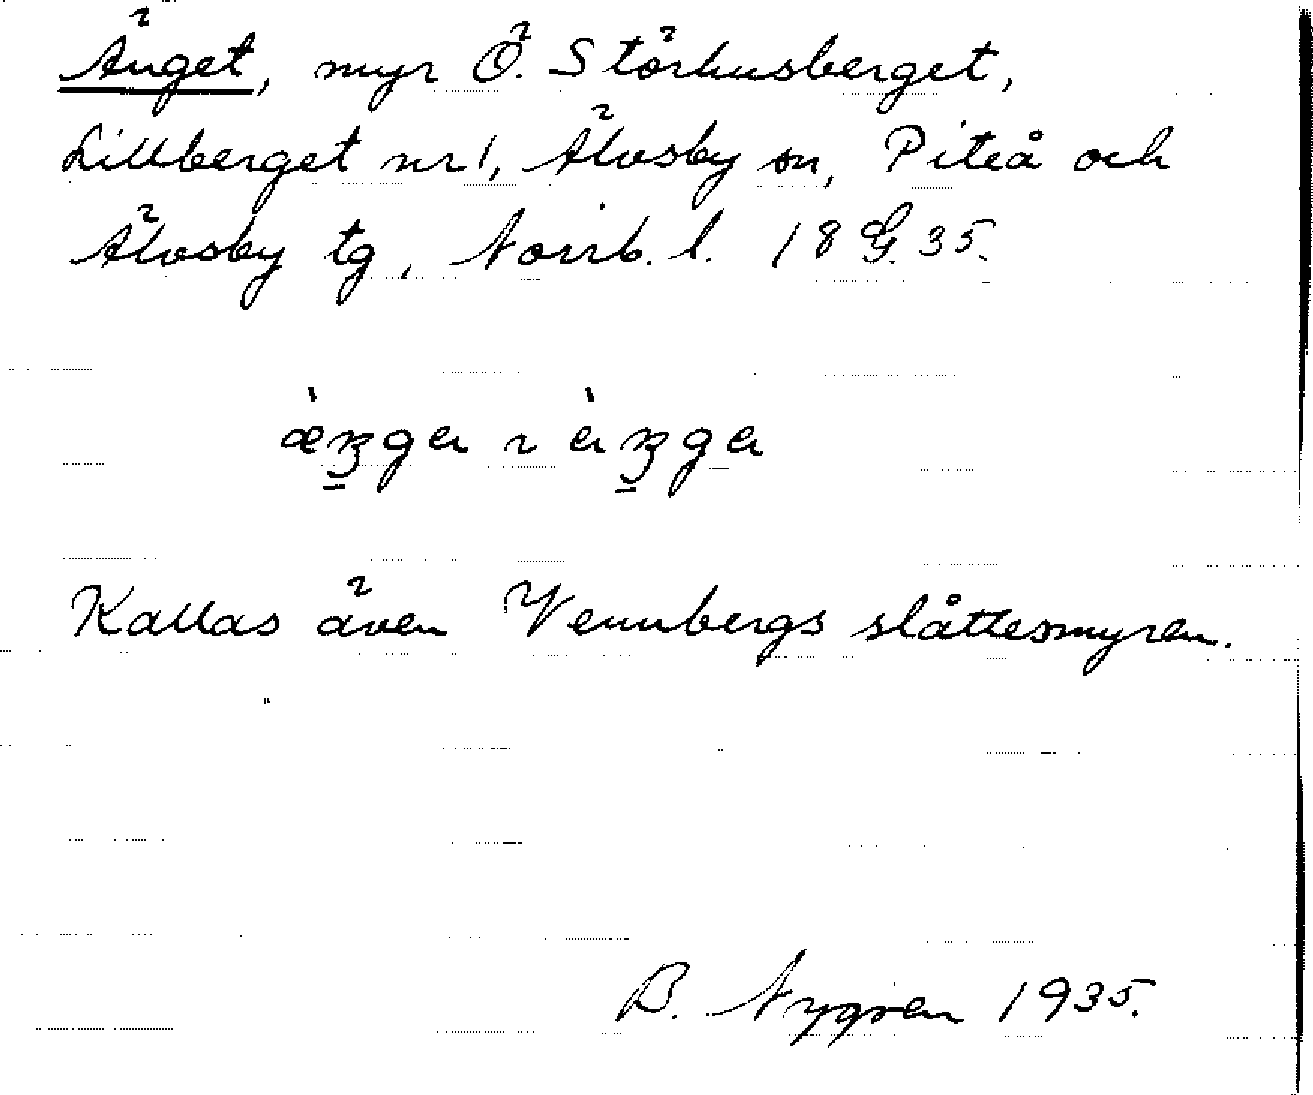 Änget, myr Ö. Störhusberget,
Lillberget nr 1, Älvsby sn, Piteå och
Älvsby tg, Norrb. l. 18 G. 35.
Kallas även Vennbergs slåttesmyren.
B. Nygren 1935.